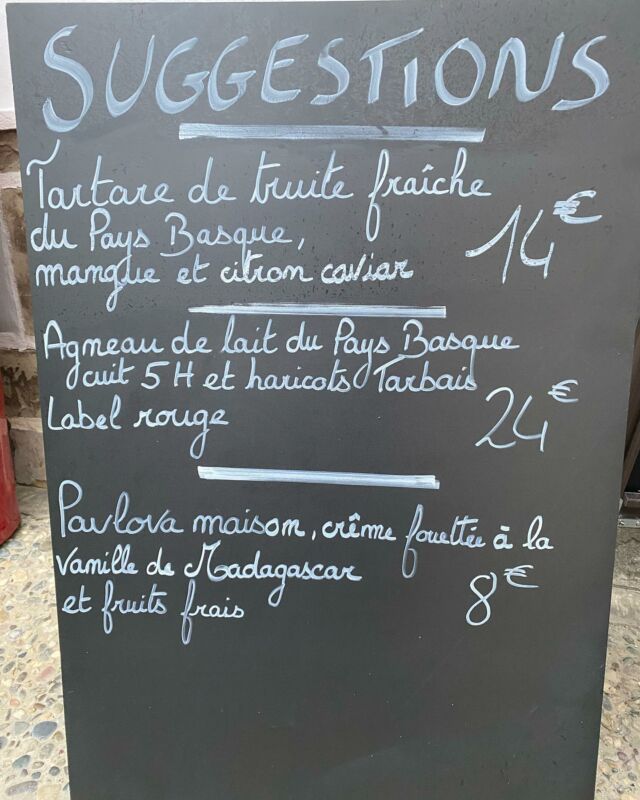 SUGGESTIONS
Tartare de truite fraîche
du Pays Basque,
mangue et citron caviar 14€
Agneau de lait du Pays Basque
cuit 5H et haricots Tarbais
Label rouge 24€
Pavlova maison, crême fouettée à la
vanille de Madagascar
et fruits frais 8€